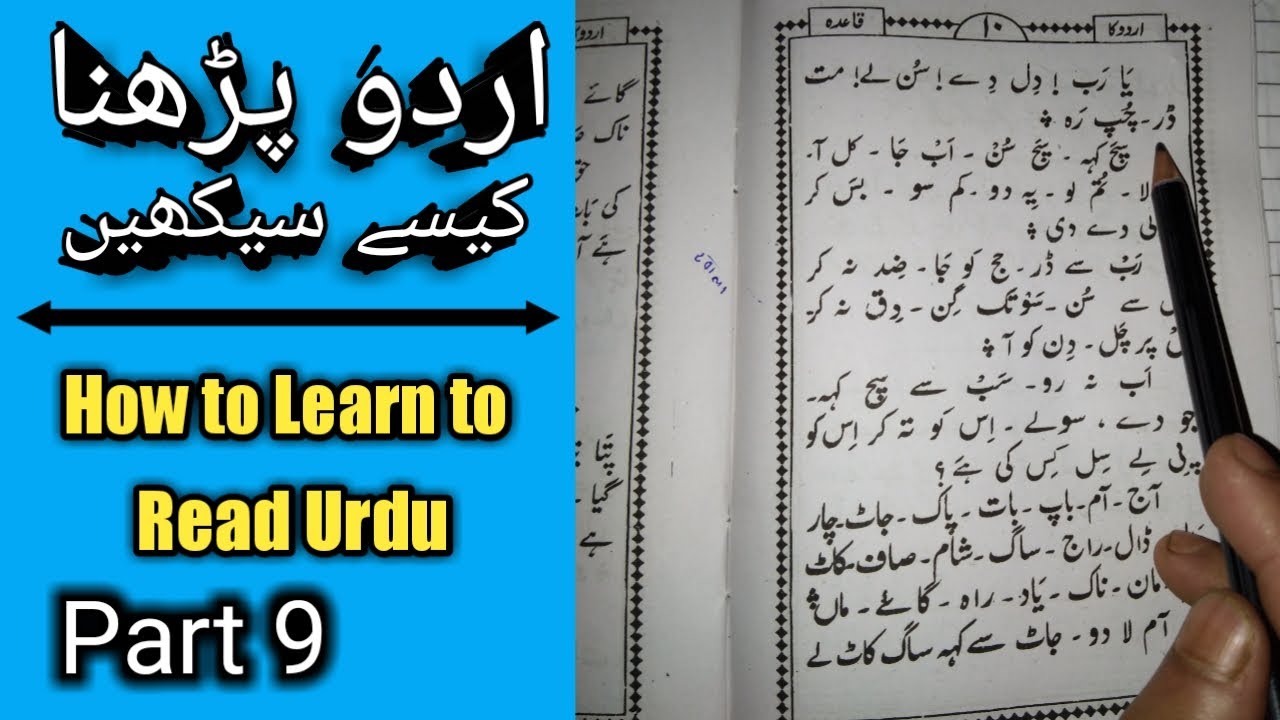 اردو پڑھنا
کیسے سیکھیں
How to Learn to
Read Urdu
Part 9
اردو کا
۱۰
قاعدہ
یَا رَب ! دِل دے ! سُن لے! مت
ڈر۔ چُپ رَہ
سچ کہہ ۔ سچ سُنْ ۔ اَبْ جَا ۔ کل آ۔
لا ۔ تُم لو ۔ یہ دو ۔ کم سو ۔ بسَ کر
دے دی
رَبْ سے ڈر ۔ حج کو جَا ۔ ضِد نہ کر
سے سُن ۔ سَوْ تک گِن ۔ دِق نہ کر
پر چَل ۔ دِن کو آ
اَب نہ رو ۔ سَبْ سے سچ کہہ ۔
جو دے ، سو لے ۔ اِس کو تہ کر اِس کو
سِل کِس کی ہَے ؟
آج ۔ آم ۔ باپ ۔ بات ۔ پاک ۔ جاٹ ۔ چار
ڈال ۔ راج ۔ ساگ ۔ شام ۔ صاف ۔ کاٹ
مان ۔ ناک ۔ یَاد ۔ راہ ۔ گائے ۔ ماں
آم لا دو ۔ جاٹ سے کہہ ساگ کاٹ لے
اردو
گائے
ناک
کی
پَتا
گیا
ہے